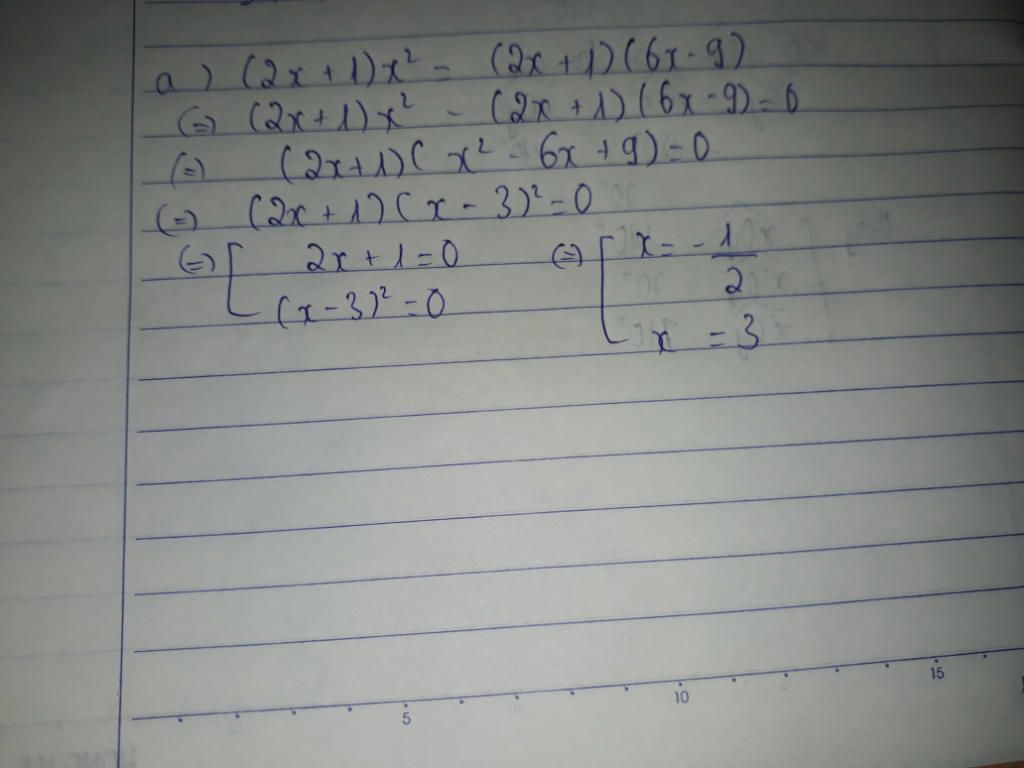 a) (2x + 1)x² = (2x + 1)(6x - 9)
(=) (2x+1)x² - (2x + 1)(6x - 9) = 0
(=) (2x+1)(x² - 6x + 9) = 0
(=) (2x + 1)(x - 3)² = 0
(=) [ 2x + 1 = 0 (=) [ x = - 1/2
(x - 3)² = 0 x = 3
5 10 15